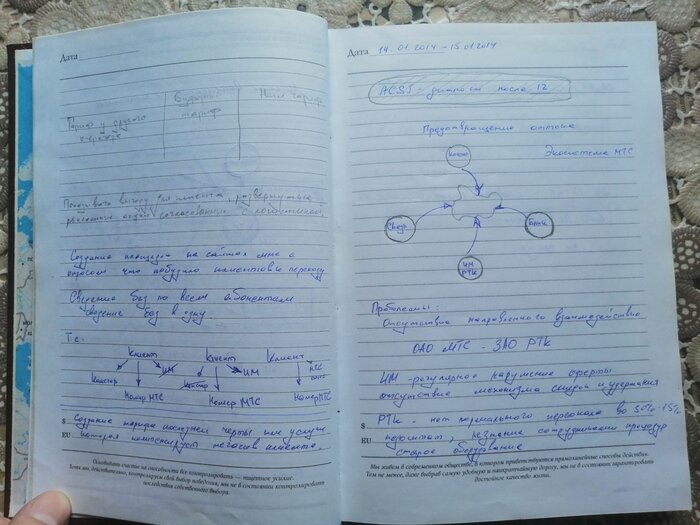 Дата
Тариф у другого
оператора
Будущий
тариф
Наш тариф
Показывать выгоду для клиента, развернуть
согласованные с
Создание площадей на сайтах мнс с
опросом что побудило клиентов к переходу
Сведение баз по всем абонентам
сведение баз в одну.
Т.е.
Клиенты Клиенты Клиент
ИМ ИМ МТС
Контор Контор
Номер МТС Номер МТС Номер МТС
$ Создание тарифа последней черты или услуг
EU которая компенсирует негатив клиента.
Основывать счастье на способности все контролировать — тщетное усилие.
Хотя мы, действительно, контролируем свой выбор поведения, мы не в состоянии контролировать
последствия собственного выбора.
Дата 14.01.2014 - 15.01.2014
ACSI - после 12
Предотвращение оттока
Экосистема МТС
Связь
Банк
ИМ
РТК
Проблемы:
Отсутствие направленного взаимодействия
ОАО МТС - ЗАО РТК
ИМ - регулярное нарушение оферты
отсутствие механизма скидок и удержания
РТК - нет нормального персонала во
$ незнание сотрудниками процедур
EU старое оборудование
Мы живем в современном обществе, в котором приветствуются прямолинейные способы действия.
Тем не менее, даже выбрав самую удобную и накатанную дорогу, мы не в состоянии гарантировать
достойное качество жизни.